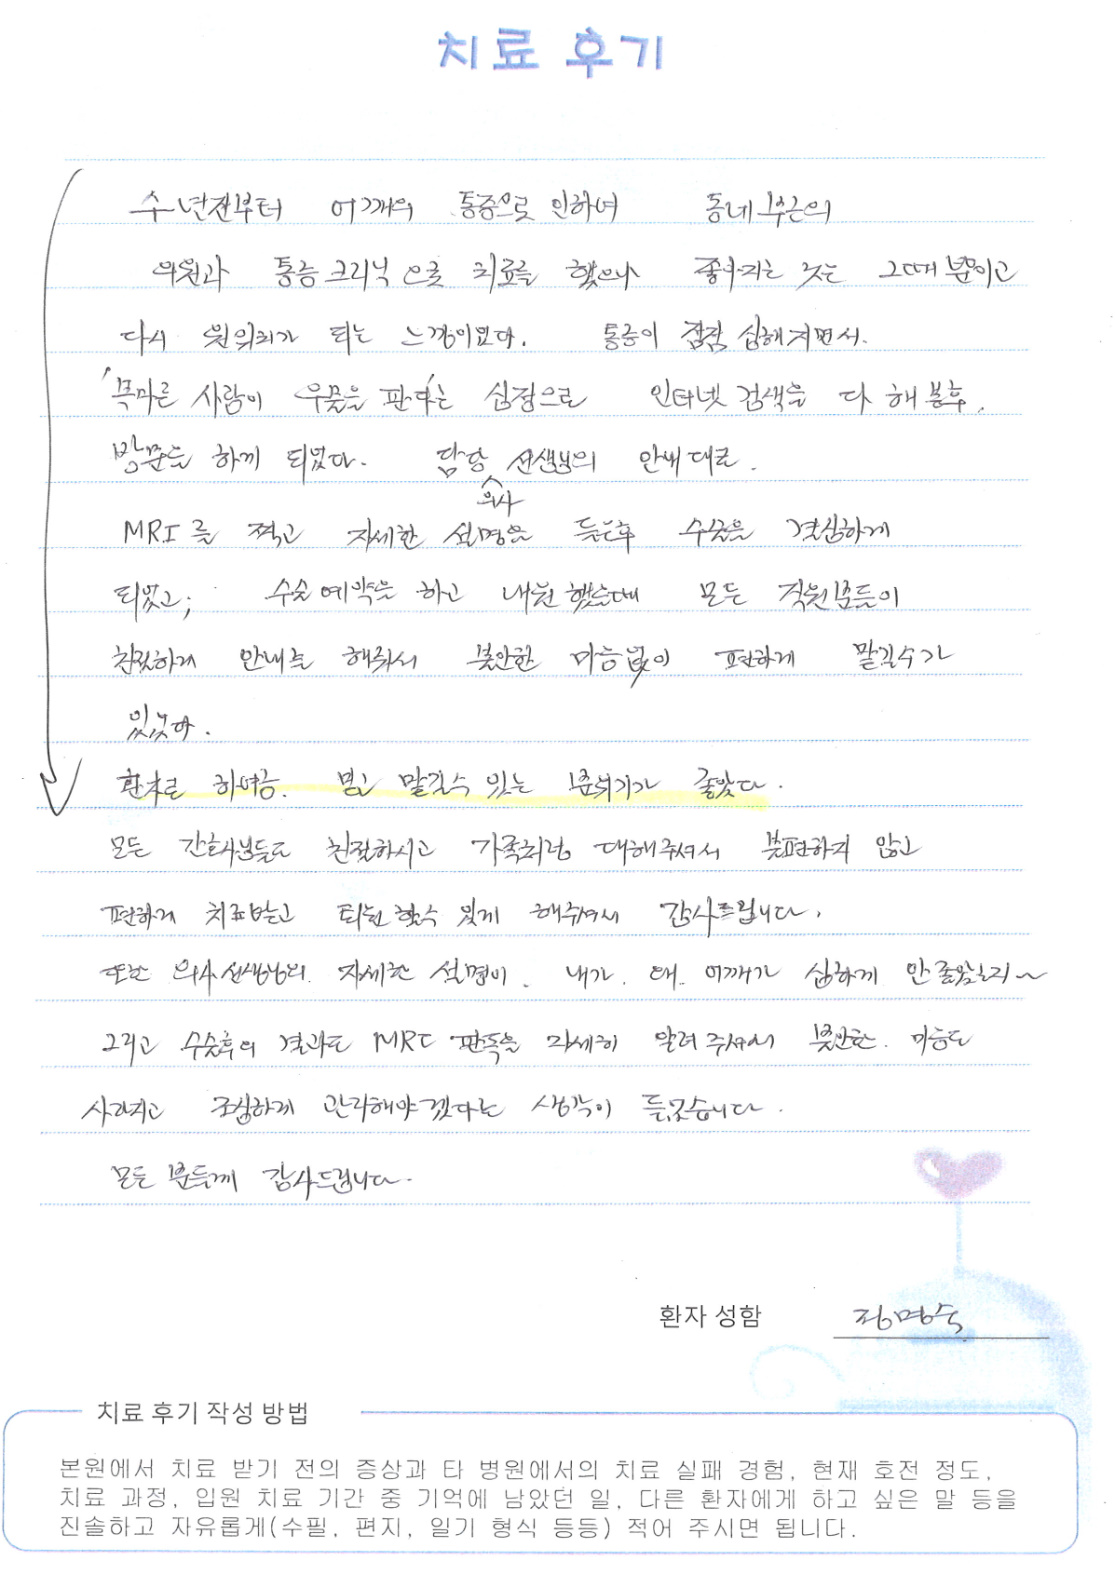 치료 후기
수년전부터 어깨의 통증으로 인하여 동네 부근의
의원과 통증 크리닉 으로 치료를 했으나 좋아지는 것은 그때 뿐이고
다시 원위치가 되는 느낌이었다. 통증이 점점 심해지면서.
'목마른 사람이 우물을 판다'는 심정으로 인터넷 검색을 다 해본후,
방문을 하게 되었다. 담당 의사 선생님의 안내대로.
MRI를 찍고 자세한 설명을 듣은후 수술을 결심하게
되었고; 수술예약을 하고 내원했을때 모든 직원분들이
친절하게 안내를 해줘서 불안한 마음없이 편하게 맡길수가
있었다.
환자로 하여금. 믿고 맡길수 있는 분위기가 좋았다.
모든 간호사님들도 친절하시고 가족처럼 대해주셔서 불편하지 않고
편하게 치료받고 퇴원할수 있게 해주셔서 감사드립니다.
또한 의사선생님의. 자세한 설명이. 내가. 왜. 어깨가 심하게 안좋았는지~
그리고 수술후의 결과도 MRI 판독을 자세히 알려주셔서 불안한. 마음도
사라지고 조심하게 관리해야겠다는 생각이 들었습니다.
모든 분들께 감사드립니다.
환자 성함 정명숙
치료 후기 작성 방법
본원에서 치료 받기 전의 증상과 타 병원에서의 치료 실패 경험, 현재 호전 정도,
치료 과정, 입원 치료 기간 중 기억에 남았던 일, 다른 환자에게 하고 싶은 말 등을
진솔하고 자유롭게(수필, 편지, 일기 형식 등등) 적어 주시면 됩니다.